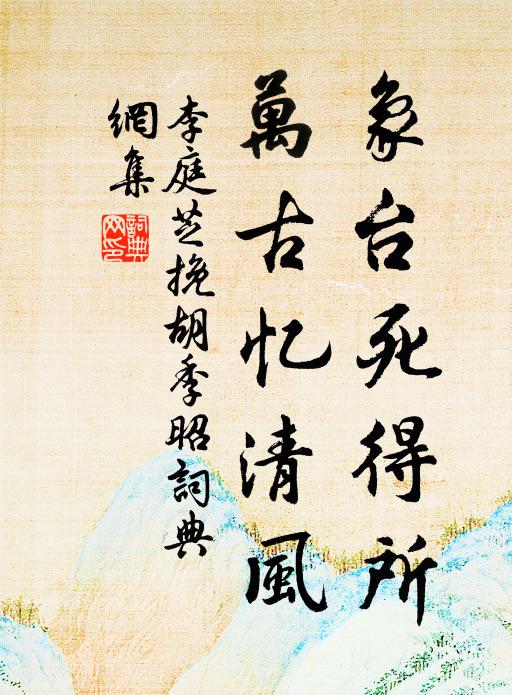 象台死得所
萬古忆清風
李庭芝挽胡季昭詞典
網集
詞典網印